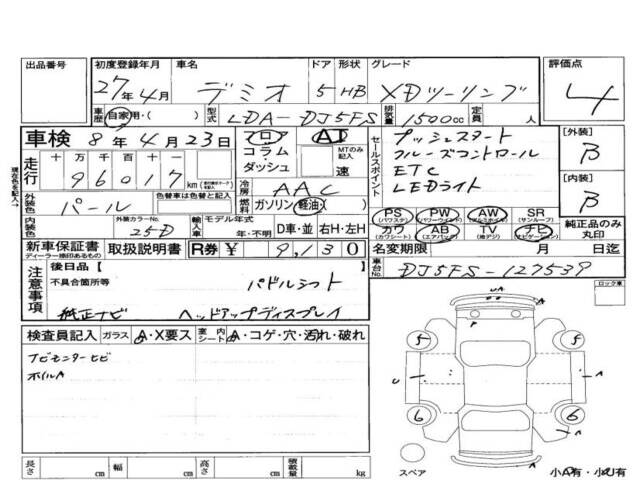 出品番号 初度登録年月 車名 ドア 形状 グレード 評価点
27年4月 デミオ 5 HB XDツーリング 4
車歴 自家用・( ) 型式 LDA-DJ5FS 排気量 1500cc 定員 人
車検 8年4月23日 フロア AT セールスポイント プッシュスタート [外装]
コラム・ダッシュ MTのみ記入 速 クルーズコントロール B
走行 十万千百十一 ETC [内装]
96017 km 冷房 AAC LEDライト B
外装色 パール 色替車は色替と記入 燃料 ガソリン・軽油・( )
PS (パワステ) PW (パワーウインド) AW (アルミホイル) SR (サンルーフ) 純正品のみ丸印
内装色 外装カラーNo. 25D 輸入車 モデル年式 年・不明 D車・並 右H・左H カワ (カワシート) AB (エアバック) TV (地デジ) ナビ (ナビゲーション)
新車保証書 ディーラー捺印あるもの 取扱説明書 R券 ¥ 9,130 名変期限 月 日迄
車台No. DJ5FS-127539
注意事項 後日品【 】 ロック車
不具合箇所等 パドルシフト
純正ナビ ヘッドアップディスプレイ
検査員記入 ガラス A・X要ス 室内シート A・コゲ・穴・汚れ・破れ
ナビモニターヒビ
ホイルA
UA A
P
5 5
U A
6 6
A
スペア 小A有・小U有
長さ cm 幅 cm 高さ cm 積載量 kg